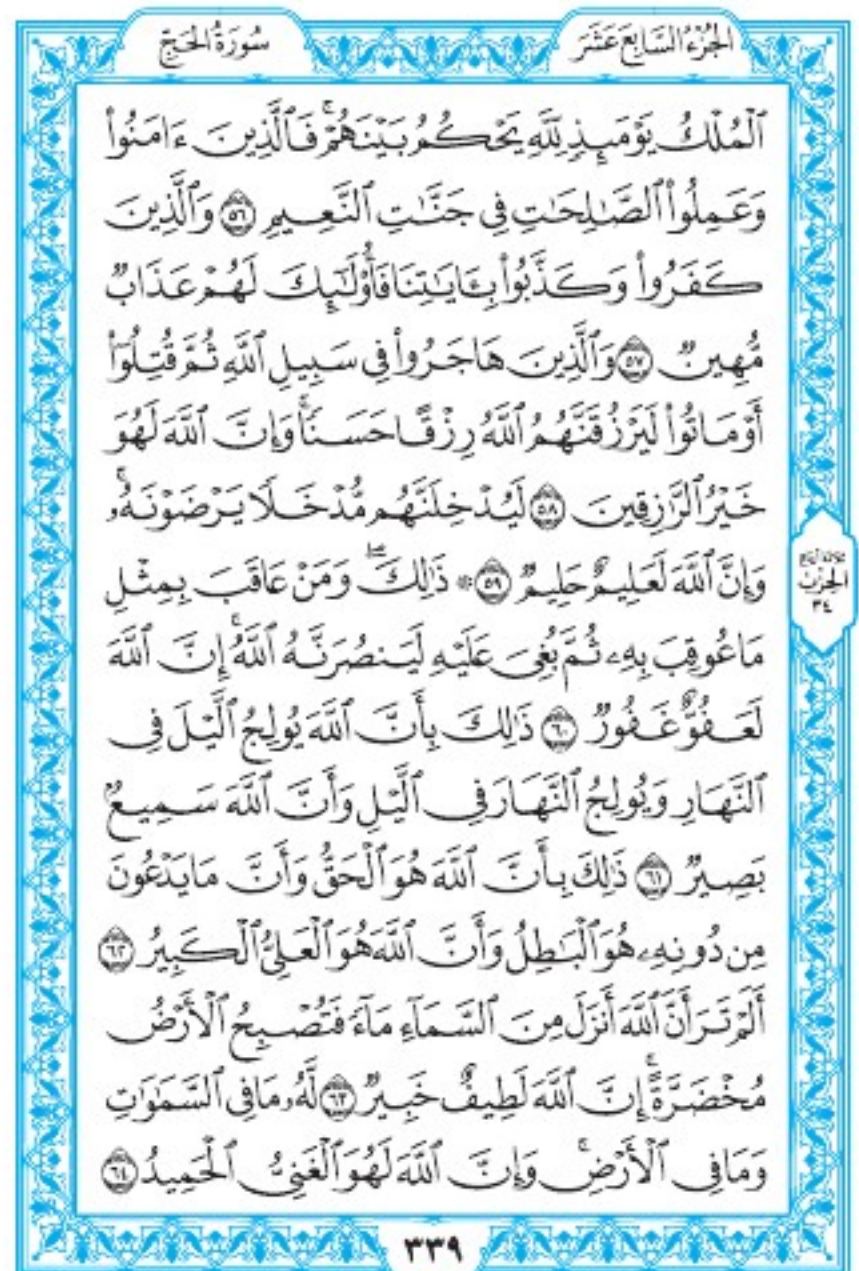 الجُزْءُ السَّابِعَ عَشَرَ
سُورَةُ الحَجِّ
ٱلْمُلْكُ يَوْمَئِذٍ لِّلَّهِ يَحْكُمُ بَيْنَهُمْۚ فَٱلَّذِينَ ءَامَنُوا۟
وَعَمِلُوا۟ ٱلصَّٰلِحَٰتِ فِى جَنَّٰتِ ٱلنَّعِيمِ ٥٦ وَٱلَّذِينَ
كَفَرُوا۟ وَكَذَّبُوا۟ بِـَٔايَٰتِنَا فَأُو۟لَٰٓئِكَ لَهُمْ عَذَابٌ
مُّهِينٌ ٥٧ وَٱلَّذِينَ هَاجَرُوا۟ فِى سَبِيلِ ٱللَّهِ ثُمَّ قُتِلُوٓا۟
أَوْ مَاتُوا۟ لَيَرْزُقَنَّهُمُ ٱللَّهُ رِزْقًا حَسَنًاۚ وَإِنَّ ٱللَّهَ لَهُوَ
خَيْرُ ٱلرَّٰزِقِينَ ٥٨ لَيُدْخِلَنَّهُم مُّدْخَلًا يَرْضَوْنَهُۥۚ
وَإِنَّ ٱللَّهَ لَعَلِيمٌ حَلِيمٌ ٥٩ ۞ ذَٰلِكَۖ وَمَنْ عَاقَبَ بِمِثْلِ
مَا عُوقِبَ بِهِۦ ثُمَّ بُغِىَ عَلَيْهِ لَيَنصُرَنَّهُ ٱللَّهُۚ إِنَّ ٱللَّهَ
لَعَفُوٌّ غَفُورٌ ٦٠ ذَٰلِكَ بِأَنَّ ٱللَّهَ يُولِجُ ٱلَّيْلَ فِى
ٱلنَّهَارِ وَيُولِجُ ٱلنَّهَارَ فِى ٱلَّيْلِ وَأَنَّ ٱللَّهَ سَمِيعٌۢ
بَصِيرٌ ٦١ ذَٰلِكَ بِأَنَّ ٱللَّهَ هُوَ ٱلْحَقُّ وَأَنَّ مَا يَدْعُونَ
مِن دُونِهِۦ هُوَ ٱلْبَٰطِلُ وَأَنَّ ٱللَّهَ هُوَ ٱلْعَلِىُّ ٱلْكَبِيرُ ٦٢
أَلَمْ تَرَ أَنَّ ٱللَّهَ أَنزَلَ مِنَ ٱلسَّمَآءِ مَآءً فَتُصْبِحُ ٱلْأَرْضُ
مُخْضَرَّةًۗ إِنَّ ٱللَّهَ لَطِيفٌ خَبِيرٌ ٦٣ لَّهُۥ مَا فِى ٱلسَّمَٰوَٰتِ
وَمَا فِى ٱلْأَرْضِۗ وَإِنَّ ٱللَّهَ لَهُوَ ٱلْغَنِىُّ ٱلْحَمِيدُ ٦٤
ثلاثة أرباع
الحِزْب
٣٤
٣٣٩